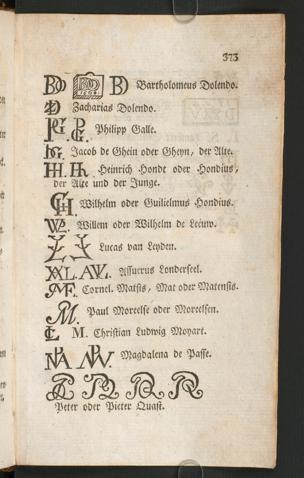 373
Bartholomeus Dolendo.
Zacharias Dolendo.
Philipp Galle.
Jacob de Ghein oder Gheyn, der Alte.
HH. Heinrich Hondt oder Hondius,
der Alte und der Junge.
Wilhelm oder Guilielmus Hondius.
Willem oder Wilhelm de Leeuw.
Lucas van Leyden.
Assuerus Londerseel.
Cornel. Matsis, Mat oder Matensis.
Paul Moreelse oder Moreelsen.
M. Christian Ludwig Moyart.
Magdalena de Passe.
Peter oder Pieter Quast.